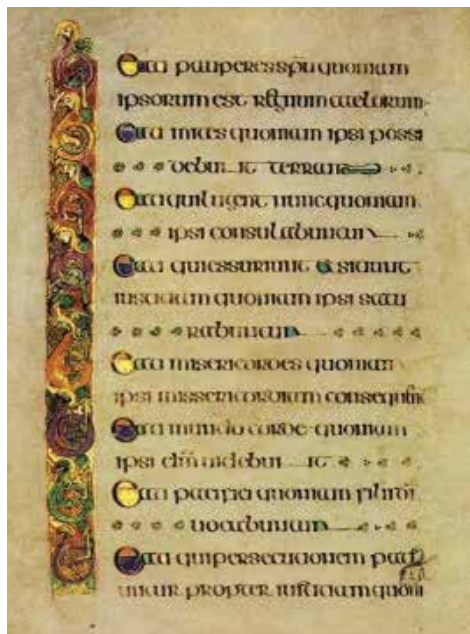 Beati pauperes spu quoniam
ipsorum est regnum caelorum
Beati mites quoniam ipsi possi
debunt terram
Beati qui lugent nunc quoniam
ipsi consulabuntur
Beati qui essuriunt & sitiunt
iusticiam quoniam ipsi satu
rabuntur
Beati misericordes quoniam
ipsi missericordiam
Beati mundo corde quoniam
ipsi dm uidebunt
Beati pacifici quoniam filii di
uocabuntur
Beati qui persecutionem pati
untur propter iusticiam quoni